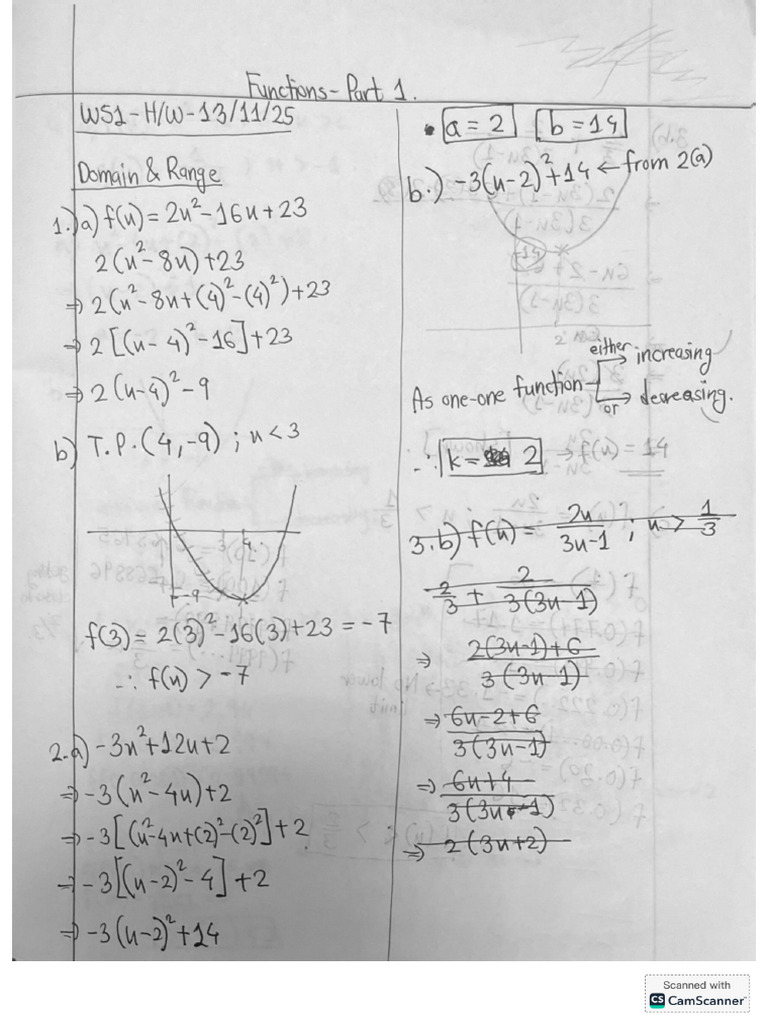 Functions - Part 1.
WS1 - H/W - 13/11/25
Domain & Range
1.) a) f(x) = 2x² - 16x + 23
2(x² - 8x) + 23
⇒ 2(x² - 8x + (4)² - (4)²) + 23
⇒ 2[(x - 4)² - 16] + 23
⇒ 2(x - 4)² - 9
b) T.P. (4, -9) ; x < 3
3 4
-9
f(3) = 2(3)² - 16(3) + 23 = -7
∴ f(x) > -7
2.a) -3x² + 12x + 2
⇒ -3(x² - 4x) + 2
⇒ -3[(x² - 4x + (2)² - (2)²] + 2
⇒ -3[(x - 2)² - 4] + 2
⇒ -3(x - 2)² + 14
• a = 2 b = 14
b.) -3(x - 2)² + 14 ← from 2(a)
14
2
As one-one function either → increasing
or → decreasing.
∴ k = 2 → f(x) = 14
3.b) f(x) = 2x/(3x - 1) ; x > 1/3
2/3 + 2/(3(3x - 1))
⇒ (2(3x - 1) + 6)/(3(3x - 1))
⇒ (6x - 2 + 6)/(3(3x - 1))
⇒ (6x + 4)/(3(3x - 1))
⇒ 2(3x + 2)
Scanned with
CS CamScanner